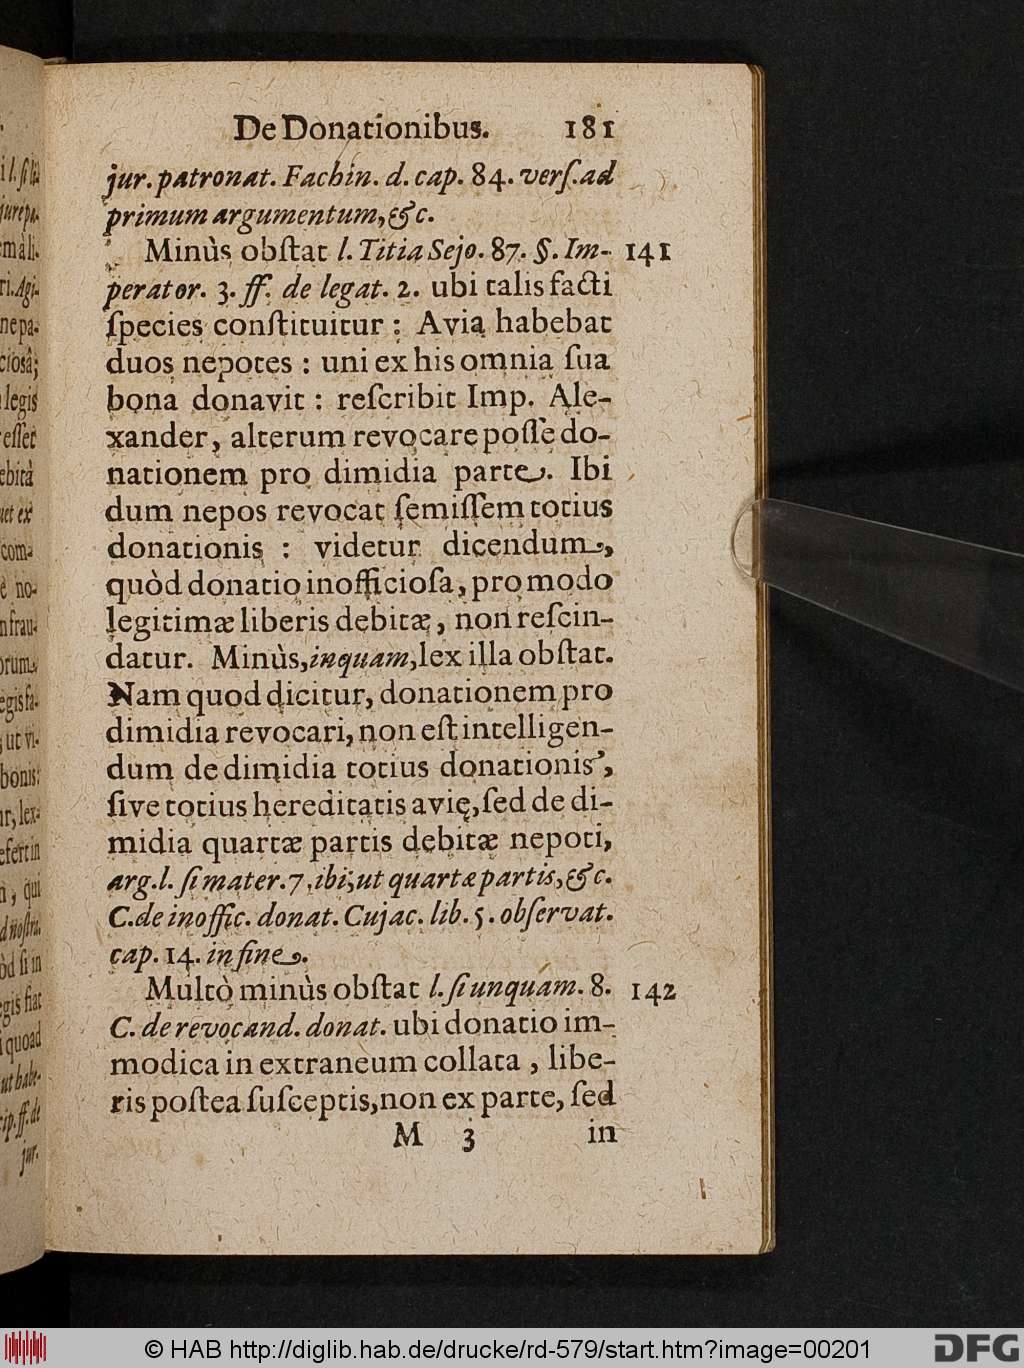 De Donationibus. 181
jur. patronat. Fachin. d. cap. 84. verſ. ad
primum argumentum, &c.
Minùs obſtat l. Titia Sejo. 87. §. Im- 141
perator. 3. ff. de legat. 2. ubi talis facti
ſpecies conſtituitur : Avia habebat
duos nepotes : uni ex his omnia ſua
bona donavit : reſcribit Imp. Ale-
xander, alterum revocare poſſe do-
nationem pro dimidia parte. Ibi
dum nepos revocat ſemiſſem totius
donationis : videtur dicendum,
quòd donatio inofficioſa, pro modo
legitimæ liberis debitæ, non reſcin-
datur. Minùs, inquam, lex illa obſtat.
Nam quod dicitur, donationem pro
dimidia revocari, non eſt intelligen-
dum de dimidia totius donationis,
ſive totius hereditatis avię, ſed de di-
midia quartæ partis debitæ nepoti,
arg. l. ſi mater. 7. ibi; ut quartæ partis, &c.
C. de inoffic. donat. Cujac. lib. 5. obſervat.
cap. 14. in fine.
Multò minùs obſtat l. ſi unquam. 8. 142
C. de revocand. donat. ubi donatio im-
modica in extraneum collata , libe-
ris poſtea ſuſceptis, non ex parte, ſed
M 3 in
© HAB http://diglib.hab.de/drucke/rd-579/start.htm?image=00201
DFG